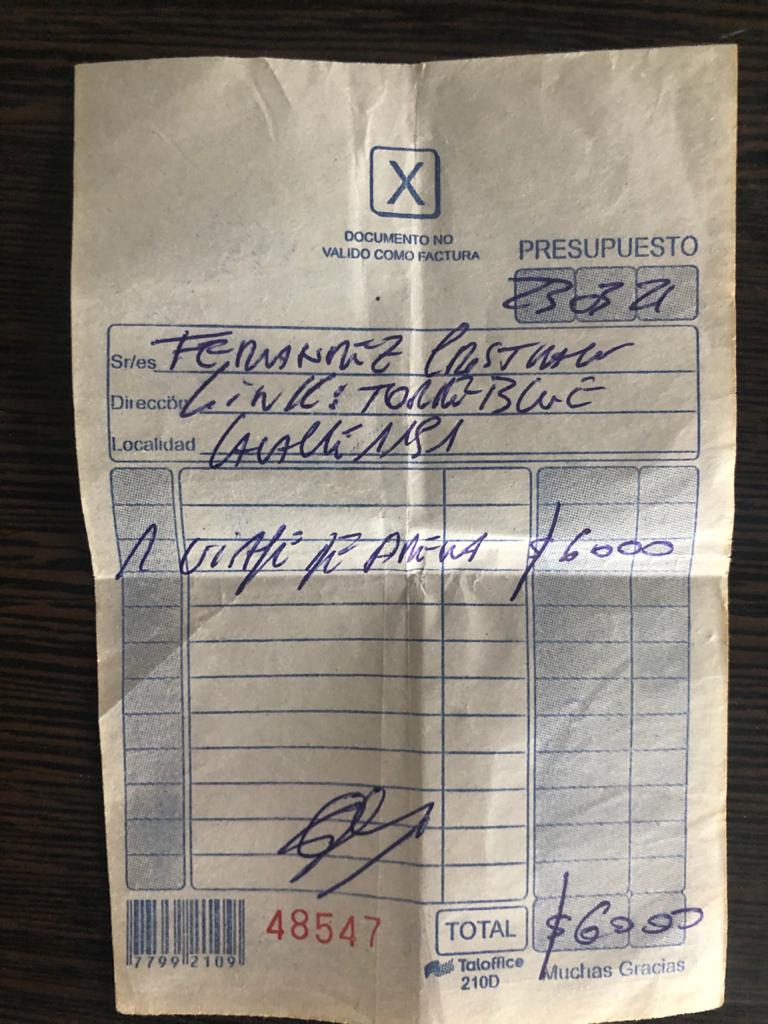 X
DOCUMENTO NO
VALIDO COMO FACTURA
PRESUPUESTO
23 03 21
Sr/es FERNANDEZ CRISTIAN
Dirección LINK: TORRE BLUE
Localidad
1 VIAJE DE ARENA $6000
48547
TOTAL $6000
7799 2109
Taloffice
210D
Muchas Gracias